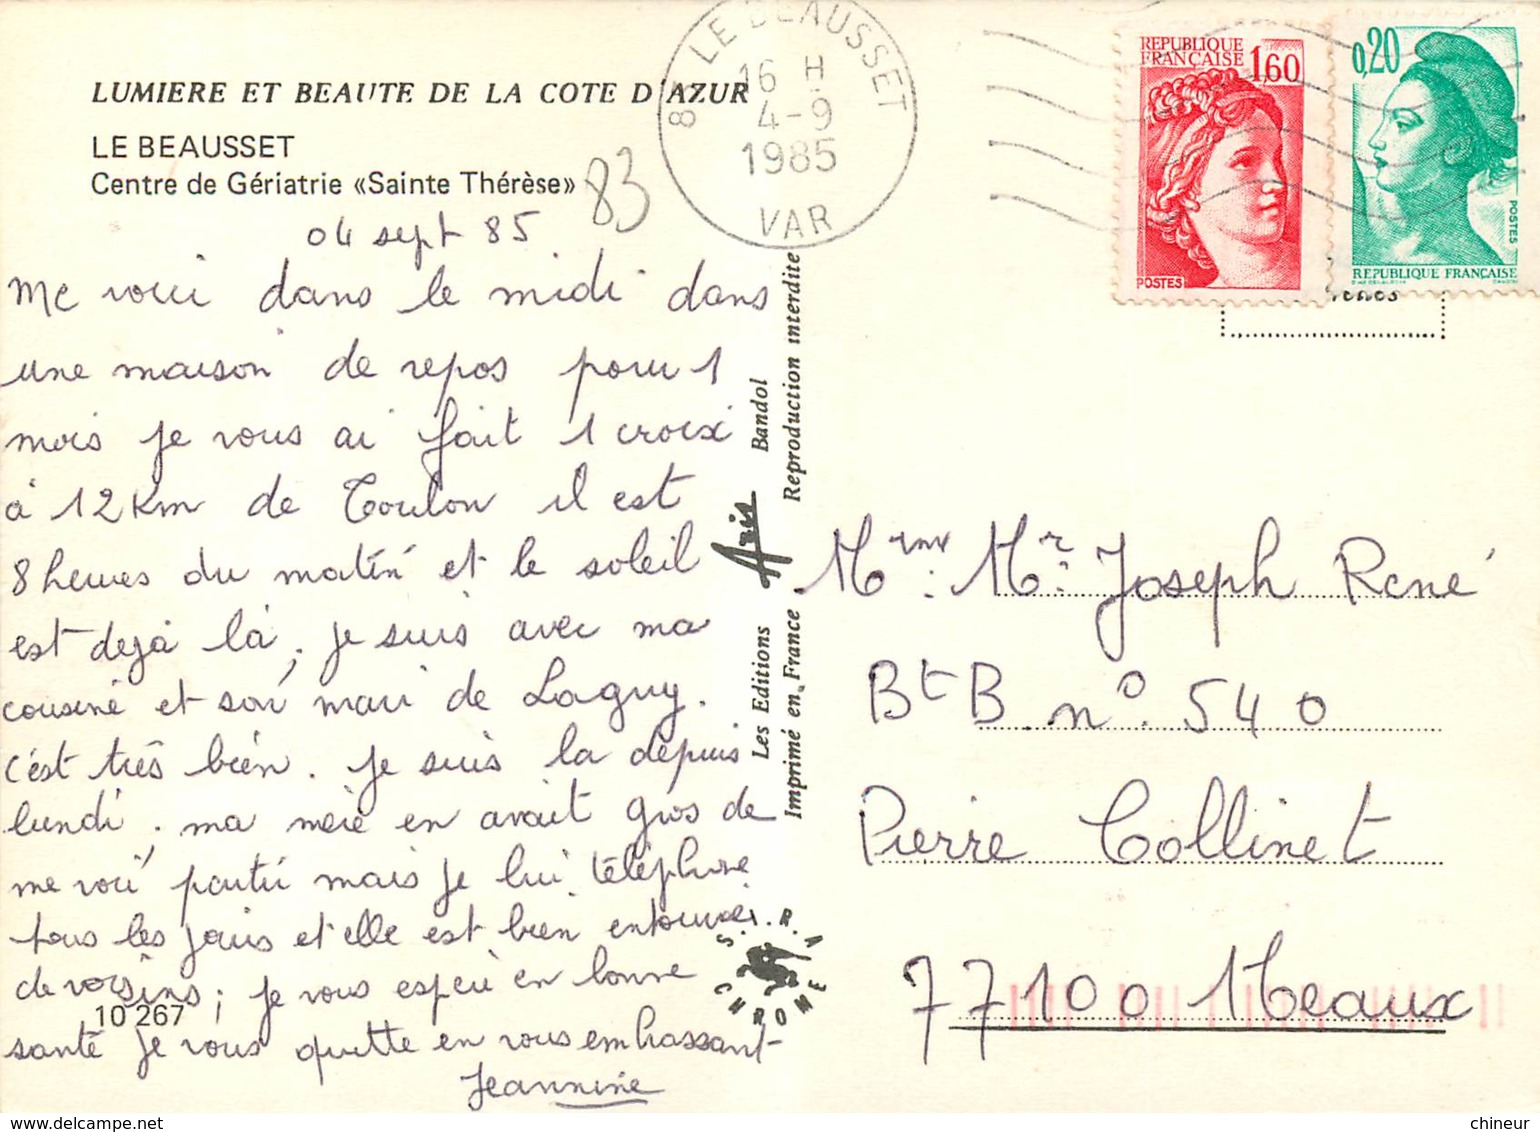 LUMIERE ET BEAUTE DE LA COTE D'AZUR
LE BEAUSSET
Centre de Gériatrie «Sainte Thérèse»
83
04 sept 85
me voici dans le midi dans
une maison de repos pour 1
mois je vous ai fait 1 croix
à 12 Km de Toulon il est
8 heures du matin et le soleil
est dejà là, je suis avec ma
cousine et son mari de Lagny.
c'est très bien. je suis la depuis
lundi, ma mère en avait gros de
me voir partir mais je lui téléphone
tous les jours et elle est bien entourée
de voisins; je vous espère en bonne
10 267
santé je vous quitte en vous embrassant
Jeannine
83 LE BEAUSSET
16 H
4-9
1985
VAR
REPUBLIQUE
FRANÇAISE
1,60
POSTES
0,20
POSTES
REPUBLIQUE FRANÇAISE
Les Editions Aris Bandol
Imprimé en France Reproduction interdite
S.I.R.A
CHROME
Mme. Mr. Joseph René
Bt B. n°. 540
Pierre Collinet
77100 Meaux
chineur.com